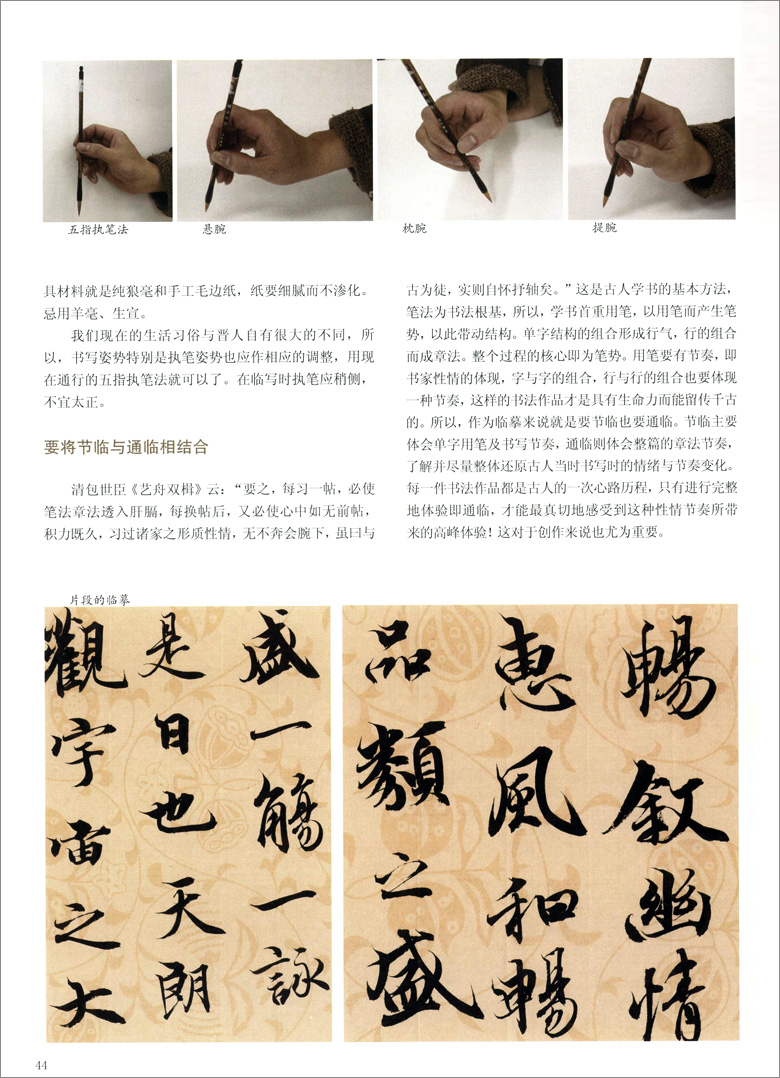 五指执笔法
悬腕
枕腕
提腕
具材料就是纯狼毫和手工毛边纸，纸要细腻而不渗化。
忌用羊毫、生宣。
我们现在的生活习俗与晋人自有很大的不同，所
以，书写姿势特别是执笔姿势也应作相应的调整，用现
在通行的五指执笔法就可以了。在临写时执笔应稍侧，
不宜太正。
要将节临与通临相结合
清包世臣《艺舟双楫》云：“要之，每习一帖，必使
笔法章法透入肝膈，每换帖后，又必使心中如无前帖，
积力既久，习过诸家之形质性情，无不奔会腕下，虽曰与
古为徒，实则自怀抒轴矣。”这是古人学书的基本方法，
笔法为书法根基，所以，学书首重用笔，以用笔而产生笔
势，以此带动结构。单字结构的组合形成行气，行的组合
而成章法。整个过程的核心即为笔势。用笔要有节奏，即
书家性情的体现，字与字的组合，行与行的组合也要体现
一种节奏，这样的书法作品才是具有生命力而能留传千古
的。所以，作为临摹来说就是要节临也要通临。节临主要
体会单字用笔及书写节奏，通临则体会整篇的章法节奏，
了解并尽量整体还原古人当时书写时的情绪与节奏变化。
每一件书法作品都是古人的一次心路历程，只有进行完整
地体验即通临，才能最真切地感受到这种性情节奏所带
来的高峰体验！这对于创作来说也尤为重要。
片段的临摹
盛一觴一詠
是日也天朗
觀宇宙之大
暢叙幽情
惠風和暢
品類之盛
44